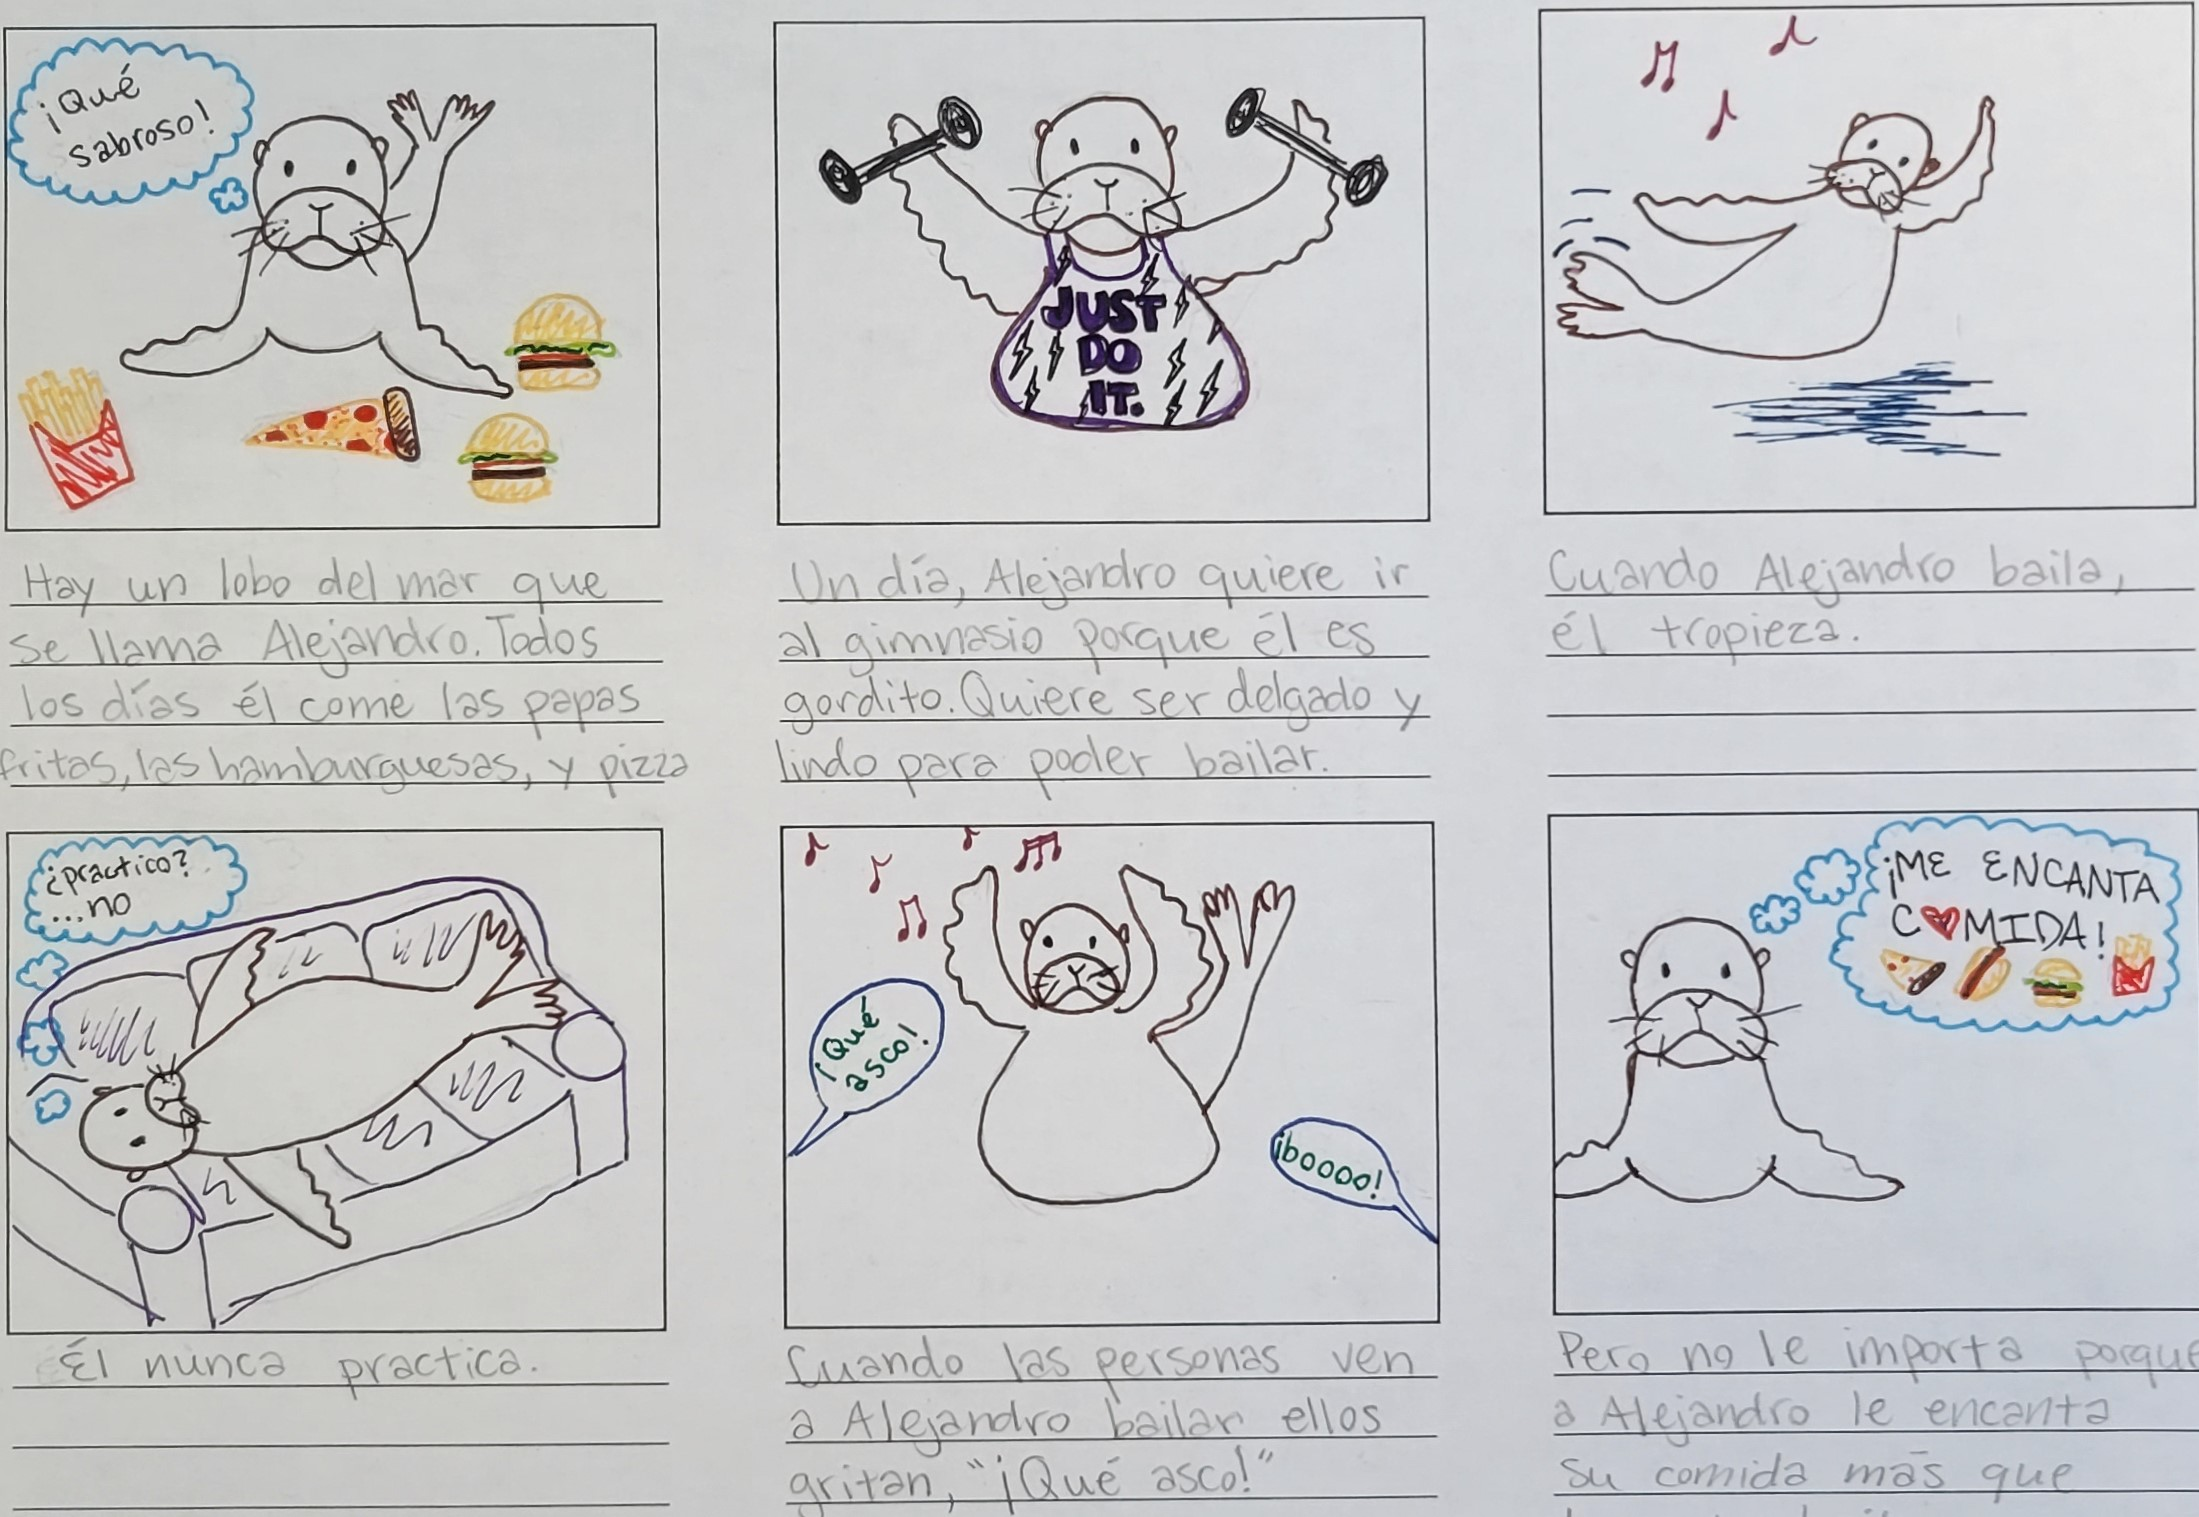 ¡Qué
sabroso!
Hay un lobo del mar que
se llama Alejandro. Todos
los días él come las papas
fritas, las hamburguesas, y pizza
JUST
DO
IT.
Un día, Alejandro quiere ir
al gimnasio porque él es
gordito. Quiere ser delgado y
lindo para poder bailar.
Cuando Alejandro baila,
él tropieza.
¿practico?
...no
Él nunca practica.
¡Qué
asco!
¡boooo!
Cuando las personas ven
a Alejandro bailar ellos
gritan, "¡Qué asco!"
¡ME ENCANTA
COMIDA!
Pero no le importa porque
a Alejandro le encanta
su comida más que